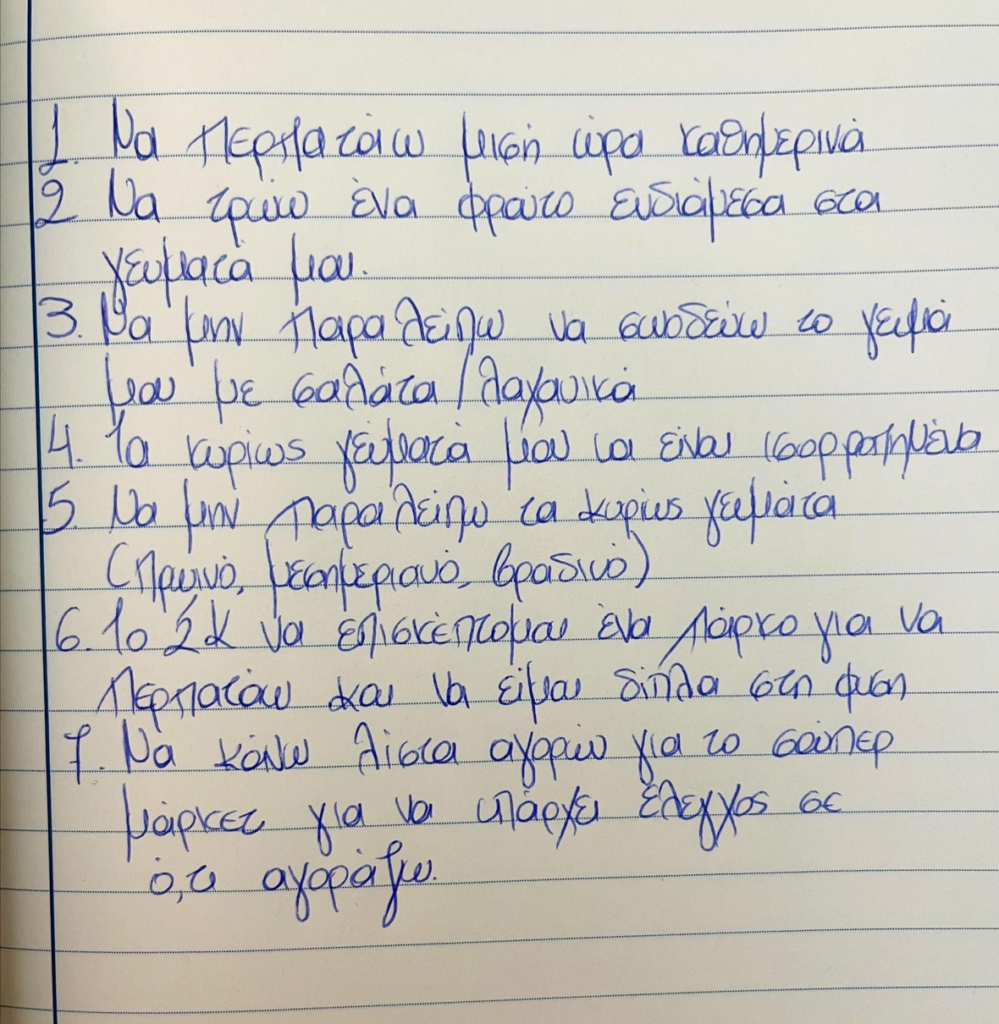 1. Να περπατάω μισή ώρα καθημερινά
2 Να τρώω ένα φρούτο ενδιάμεσα στα
γεύματά μου.
3. Να μην παραλείπω να συνοδεύω το γεύμα
μου με σαλάτα/λαχανικά
4. Τα κυρίως γεύματά μου να είναι ισορροπημένα
5. Να μην παραλείπω τα κυρίως γεύματα
(πρωινό, μεσημεριανό, βραδινό)
6. Το ΣΚ να επισκέπτομαι ένα πάρκο για να
περπατάω και να είμαι δίπλα στη φύση
7. Να κάνω λίστα αγορών για το σούπερ
μάρκετ για να υπάρχει έλεγχος σε
ό,τι αγοράζω.